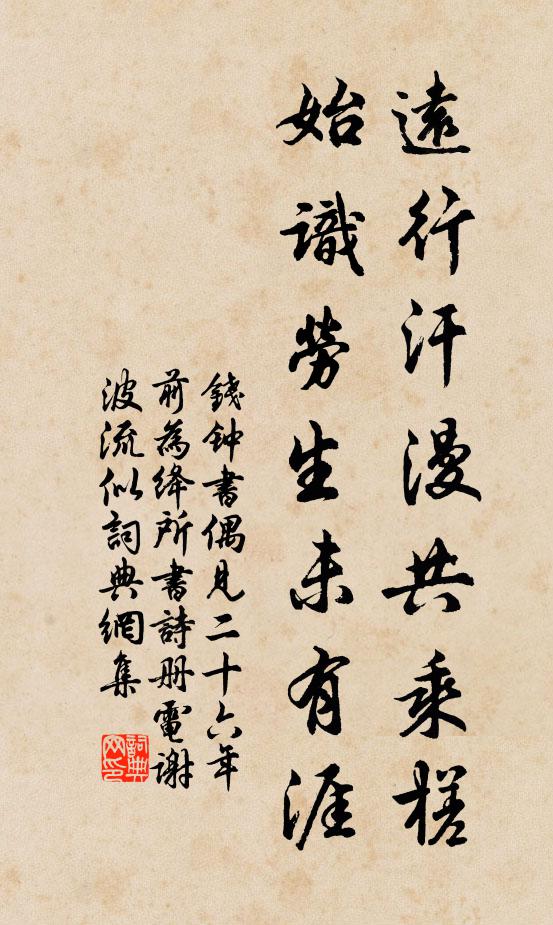 遠行汗漫共乘槎
始識勞生未有涯
錢钟書偶見二十六年
前為絳所書詩册電謝
波流似詞典網集
詞典
网印